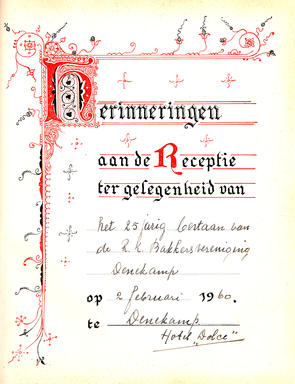 Herinneringen
aan de Receptie
ter gelegenheid van
het 25 jarig bestaan van
de R.K. Bakkersvereniging
Denekamp
op 2 februari 1960.
te Denekamp
Hotel "Dolce"